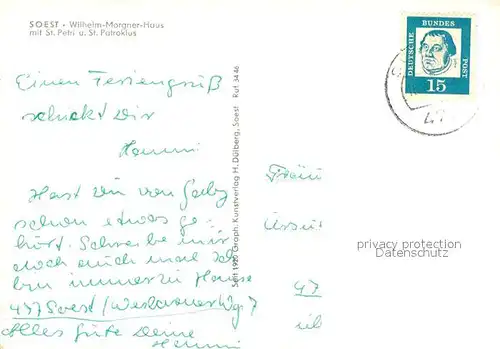 SOEST · Wilhelm-Morgner-Haus
mit St. Petri u. St. Patroklus
Einen Feriengruß
schickt Dir
Hanni
Hast Du von Gaby
schon etwas ge-
hört. Schreibe mir
doch auch mal
bin immer zu Hause
477 Soest / Weg 7
Alles Gute Deine
Hanni
Seit 1920 Graph. Kunstverlag H. Dülberg, Soest Ruf 34 46
DEUTSCHE
BUNDES
POST
15
47
Fräu
47
privacy protection
Datenschutz